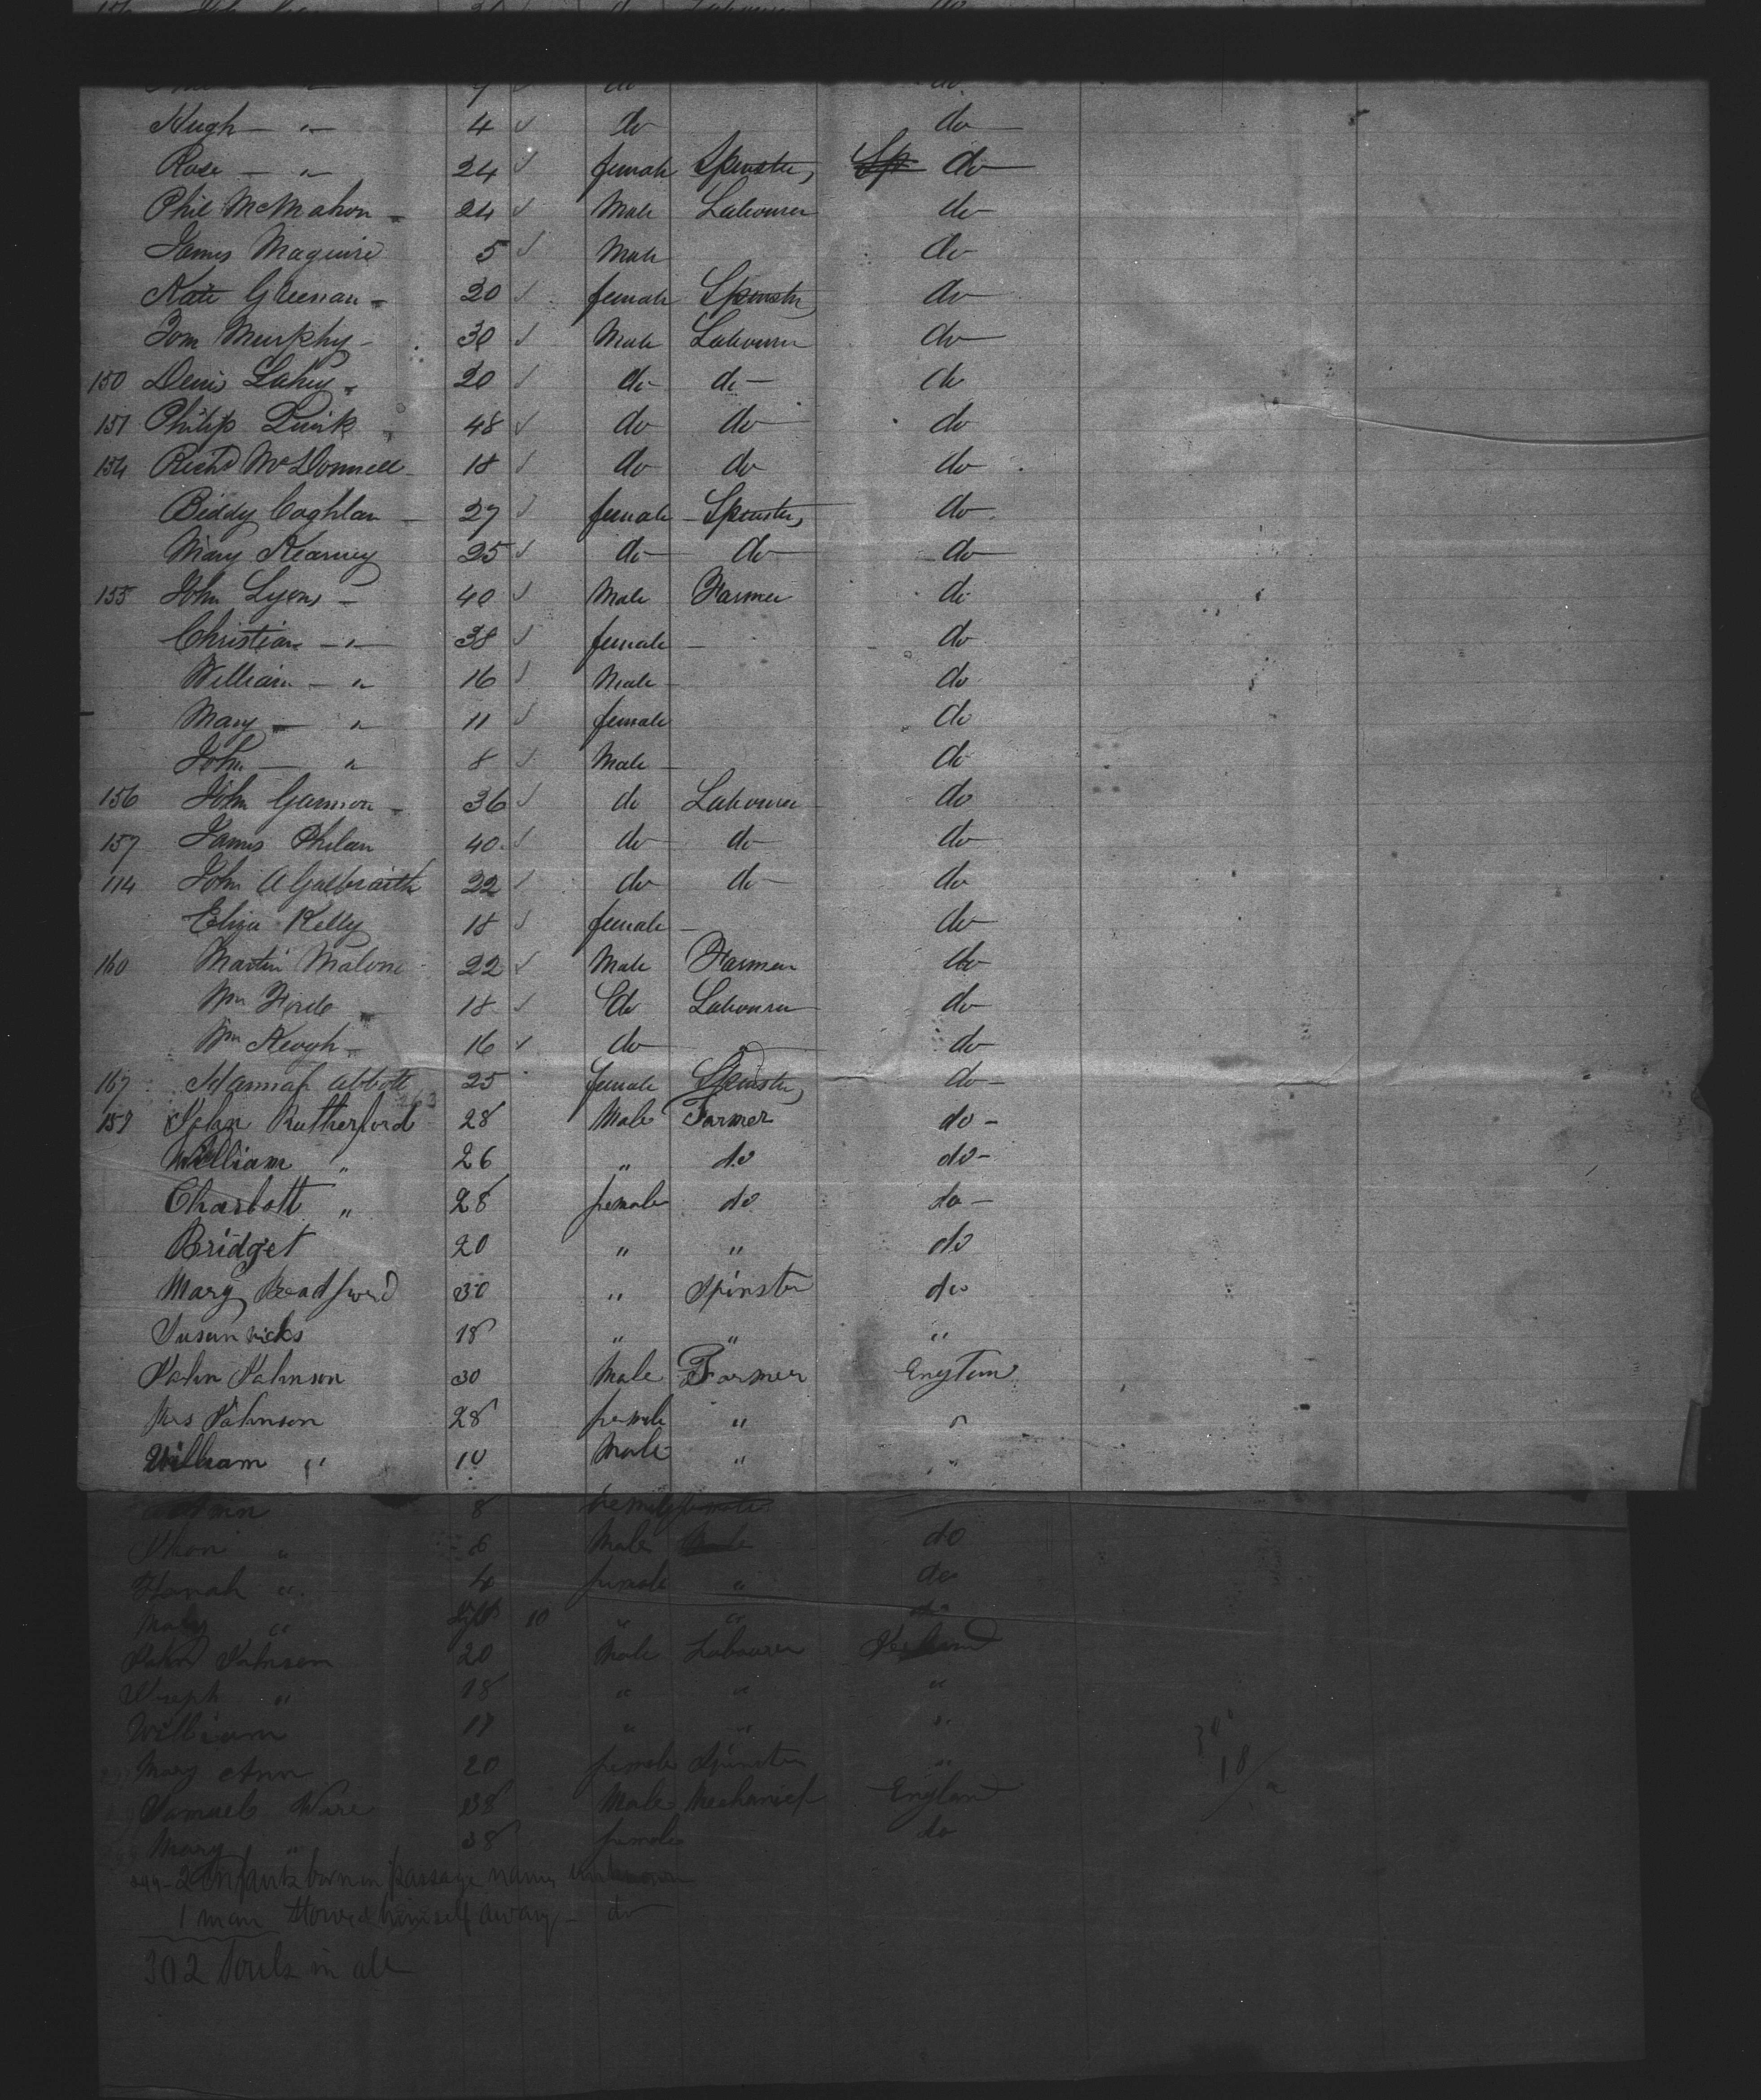 Hugh — " 4 ✓ do do
Rose — " 24 ✓ female Spinster, Sp do
Phil McMahon 24 ✓ Male Labourer do
James Maguire 5 ✓ Male do
Kate Greenan 20 ✓ female Spinster do
Tom Murphy 30 ✓ Male Labourer do
150 Denis Lahey 20 ✓ do do do
151 Philip Quirk 48 ✓ do do do
154 Richd McDonnell 18 ✓ do do do
Biddy Coghlan 27 ✓ female Spinster, do
Mary Kearney 25 ✓ do do do
155 John Lyons 40 ✓ Male Farmer do
Christian — " 38 ✓ female — do
William — " 16 ✓ Male — do
Mary — " 11 ✓ female do
John — " 8 ✓ Male — do
156 John Gannon 36 ✓ do Labourer do
157 James Phelan 40 ✓ do do do
114 John A Galbraith 22 ✓ do do do
Eliza Kelly 18 ✓ female — do
160 Martin Malone 22 ✓ Male Farmer do
Wm Forde 18 ✓ do Labourer do
Wm Keogh 16 ✓ do do
167 Hannah Abbott 25 female Spinster, do
John Rutherford 28 Male Farmer do -
William " 26 " do do -
Charlott " 28 female do do -
Bridget 20 " " do
Mary 30 " Spinster do
Susan 18 " " "
John Johnson 30 Male Farmer
Mrs Johnson 28 female " "
William " 10 Male " "
8
" Male do
Hanah " 4 female " do
Mary " 10 " " do
John Johnson 20 Male Labourer
Joseph " 18 " " "
William 17 " " "
Mary Ann 20 female Spinster "
Samuel Ware 38 Male Mechanick England
Mary " 38 female do
2 Infants born on passage names unknown
1 man stowed himself away — do
302 Souls in all